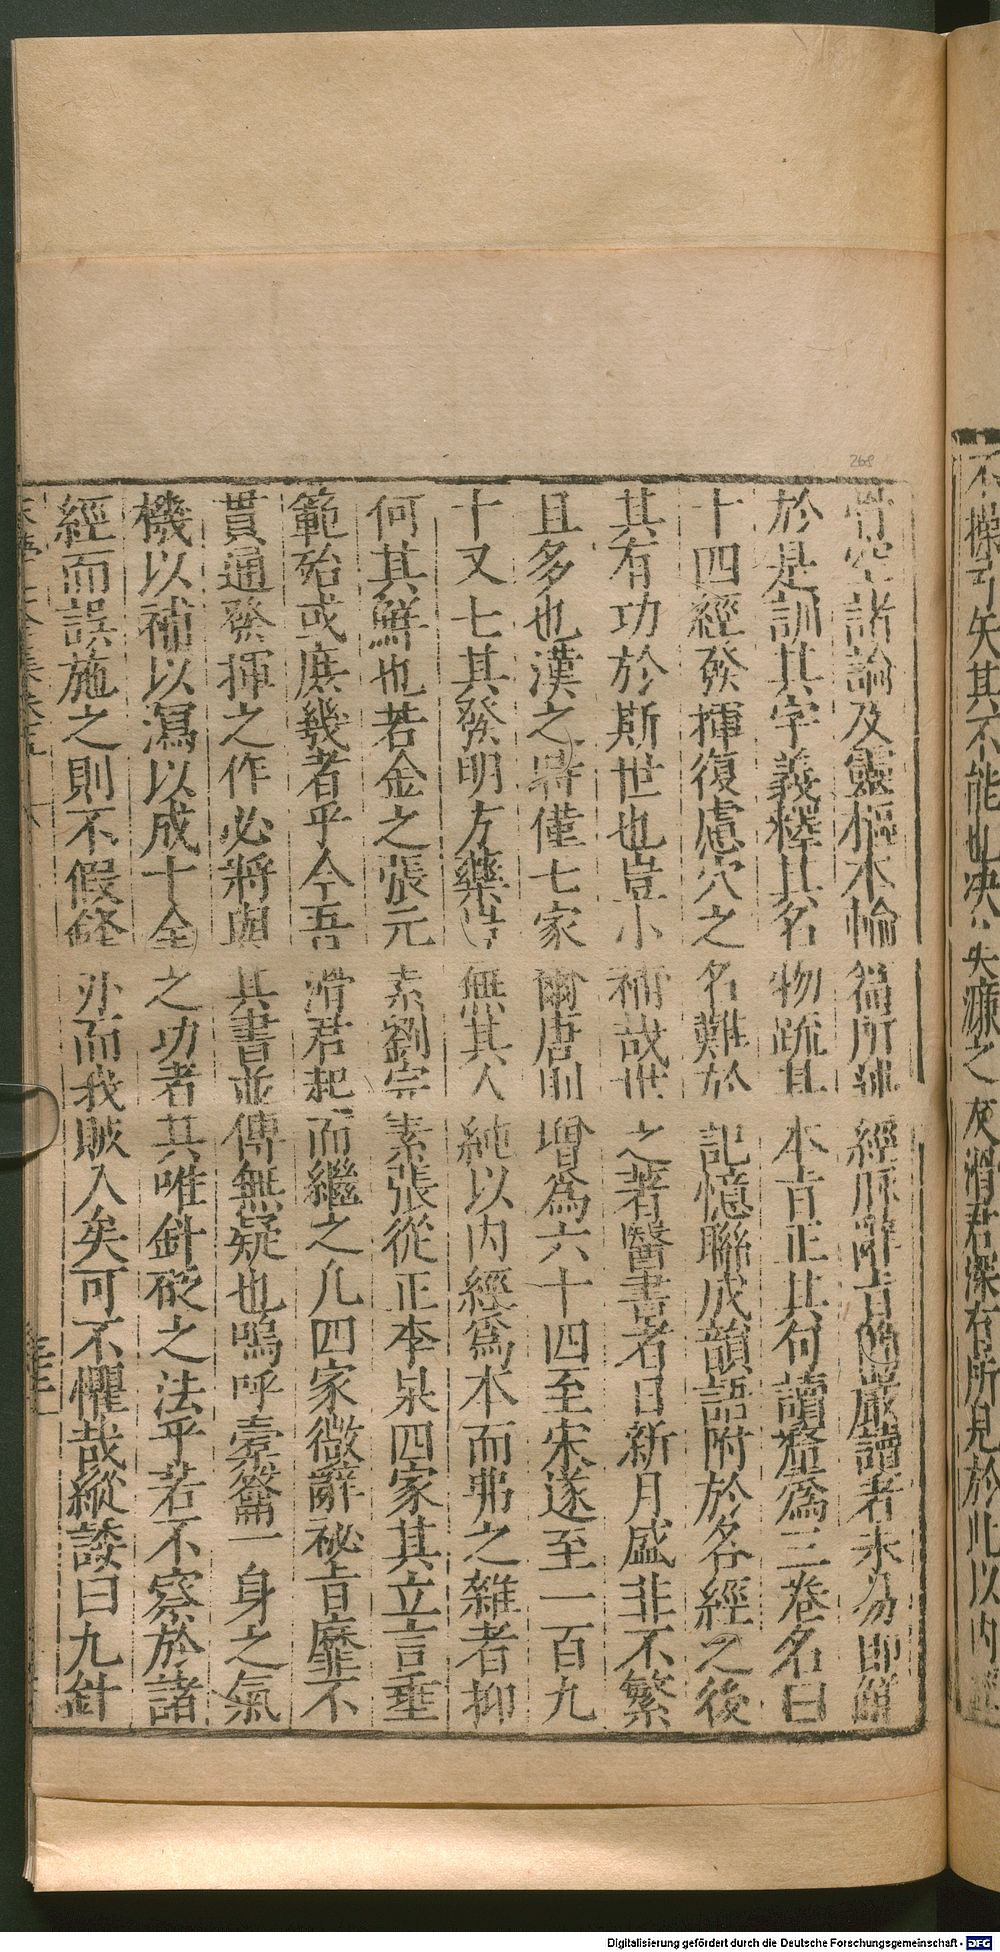 不操弓矢其不能也决矣濂之友滑君深有所見於此以内經
骨空諸論及靈樞本輸篇所述經脉辭旨簡嚴讀者未易即解
於是訓其字義釋其名物疏其本旨正其句讀釐爲三卷名曰
十四經發揮復慮穴之名難於記憶聯成韻語附於各經之後
其有功於斯世也豈小補哉世之著醫書者日新月盛非不繁
且多也漢之時僅七家爾唐則增爲六十四至宋遂至一百九
十又七其發明方藥豈無其人純以内經爲本而弗之雜者抑
何其鮮也若金之張元素劉完素張從正李杲四家其立言垂
範殆或庶幾者乎今吾滑君起而繼之凡四家微辭祕旨靡不
貫通發揮之作必將與其書並傳無疑也嗚呼橐籥一身之氣
機以補以瀉以成十全之功者其唯針砭之法乎若不察於諸
經而誤施之則不假鋒刃而戕賊人矣可不懼哉縱諉曰九針
268
Digitalisierung gefördert durch die Deutsche Forschungsgemeinschaft - DFG